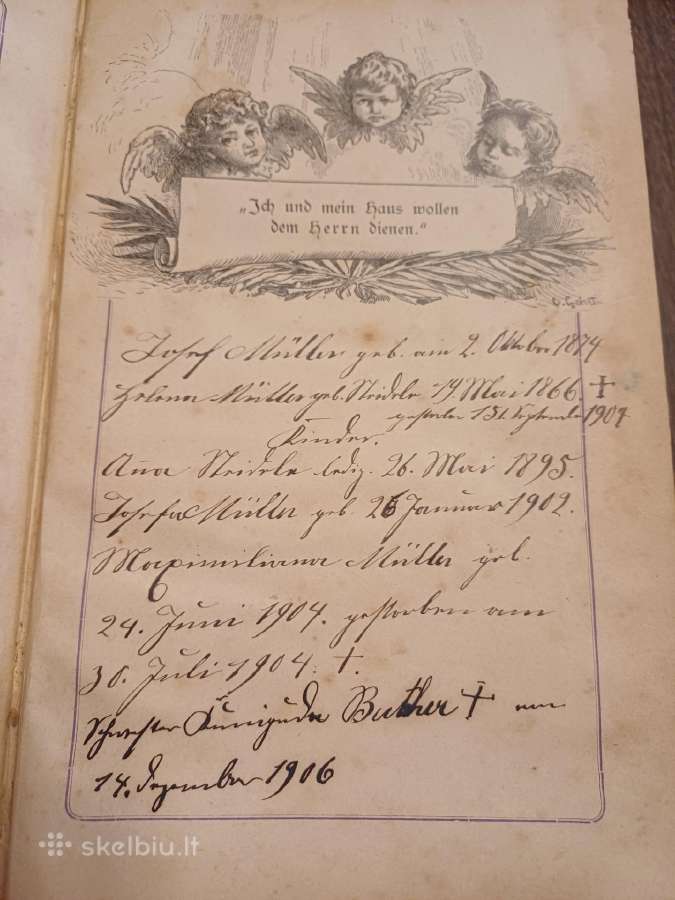 „Ich und mein Haus wollen
dem Herrn dienen.“
Josef Müller geb. am 2. Oktober 1874
Helena Müller geb. Steidele 14. Mai 1866. †
gestorben 13t. September 1904
Kinder.
Anna Steidele ledig. 26. Mai 1895.
Josefa Müller geb. 26 Januar 1902.
Maximiliana Müller geb.
24. Juni 1904. gestorben am
30. Juli 1904. †.
Schwester Kunigunda Buther † am
14. Dezember 1906
skelbiu.lt